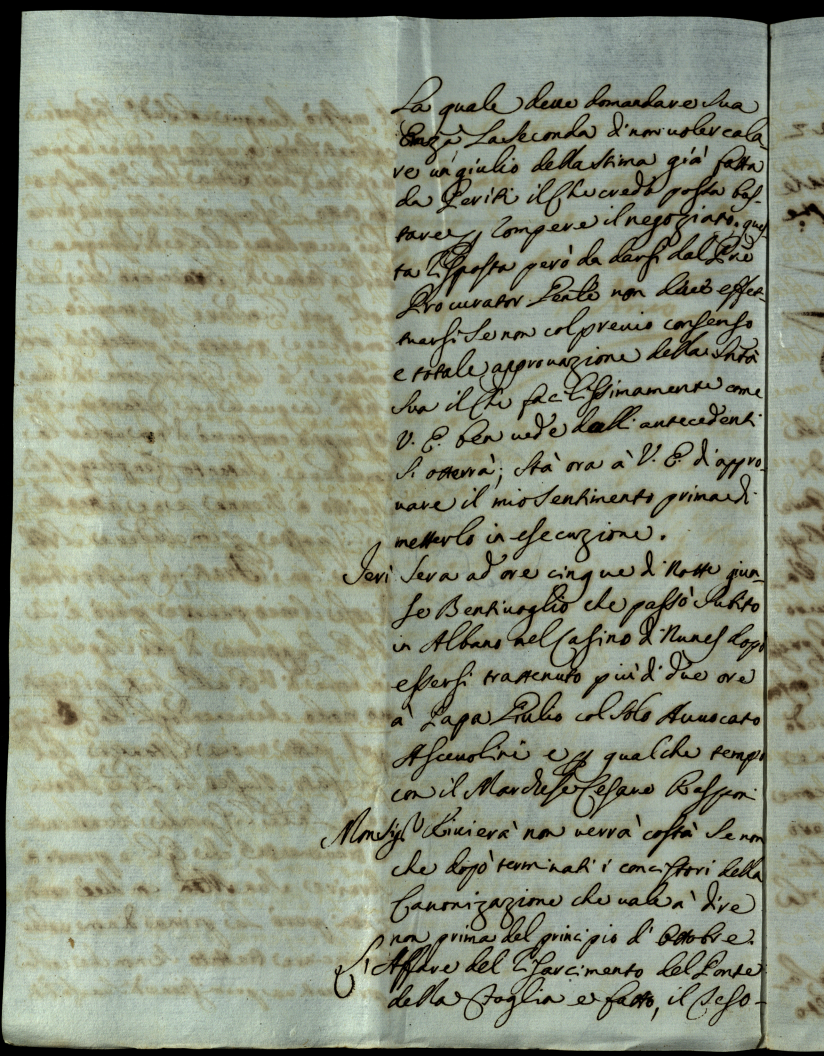 La quale deue domandare Sua
Emza, La Seconda di non uoler cala
re un giulio della stima già fatta
da Periti il che credo possa bas-
tare p rompere il negoziato. ques
ta risposta però da darsi dal Pre
Procurator Gente non deue effet-
tuarsi se non col preuio consenso
e totale approuazione della Sntà
Sua il che facilissimamente come
V. E. ben uede dalli antecedenti
si otterrà; Stà ora à V. E. d'appro-
uare il mio sentimento prima di
metterlo in esecuzione.
Ieri Sera ad ore cinque di Notte giun-
se Bentiuoglio che passò Subito
in Albano nel Casino di Nunes dopo
essersi trattenuto più di due ore
à Papa Giulio col solo Auuocato
Asceuolini e p qualche tempo
con il Marchese Cesare Rasponi
Monsigr Riuiera non uerrà costà se non
che dopò terminati i concistori della
Canonizazione che uale à dire
non prima del principio di Ottobre.
L'Affare del risarcimento del Ponte
della Foglia e fatto, il Teso-